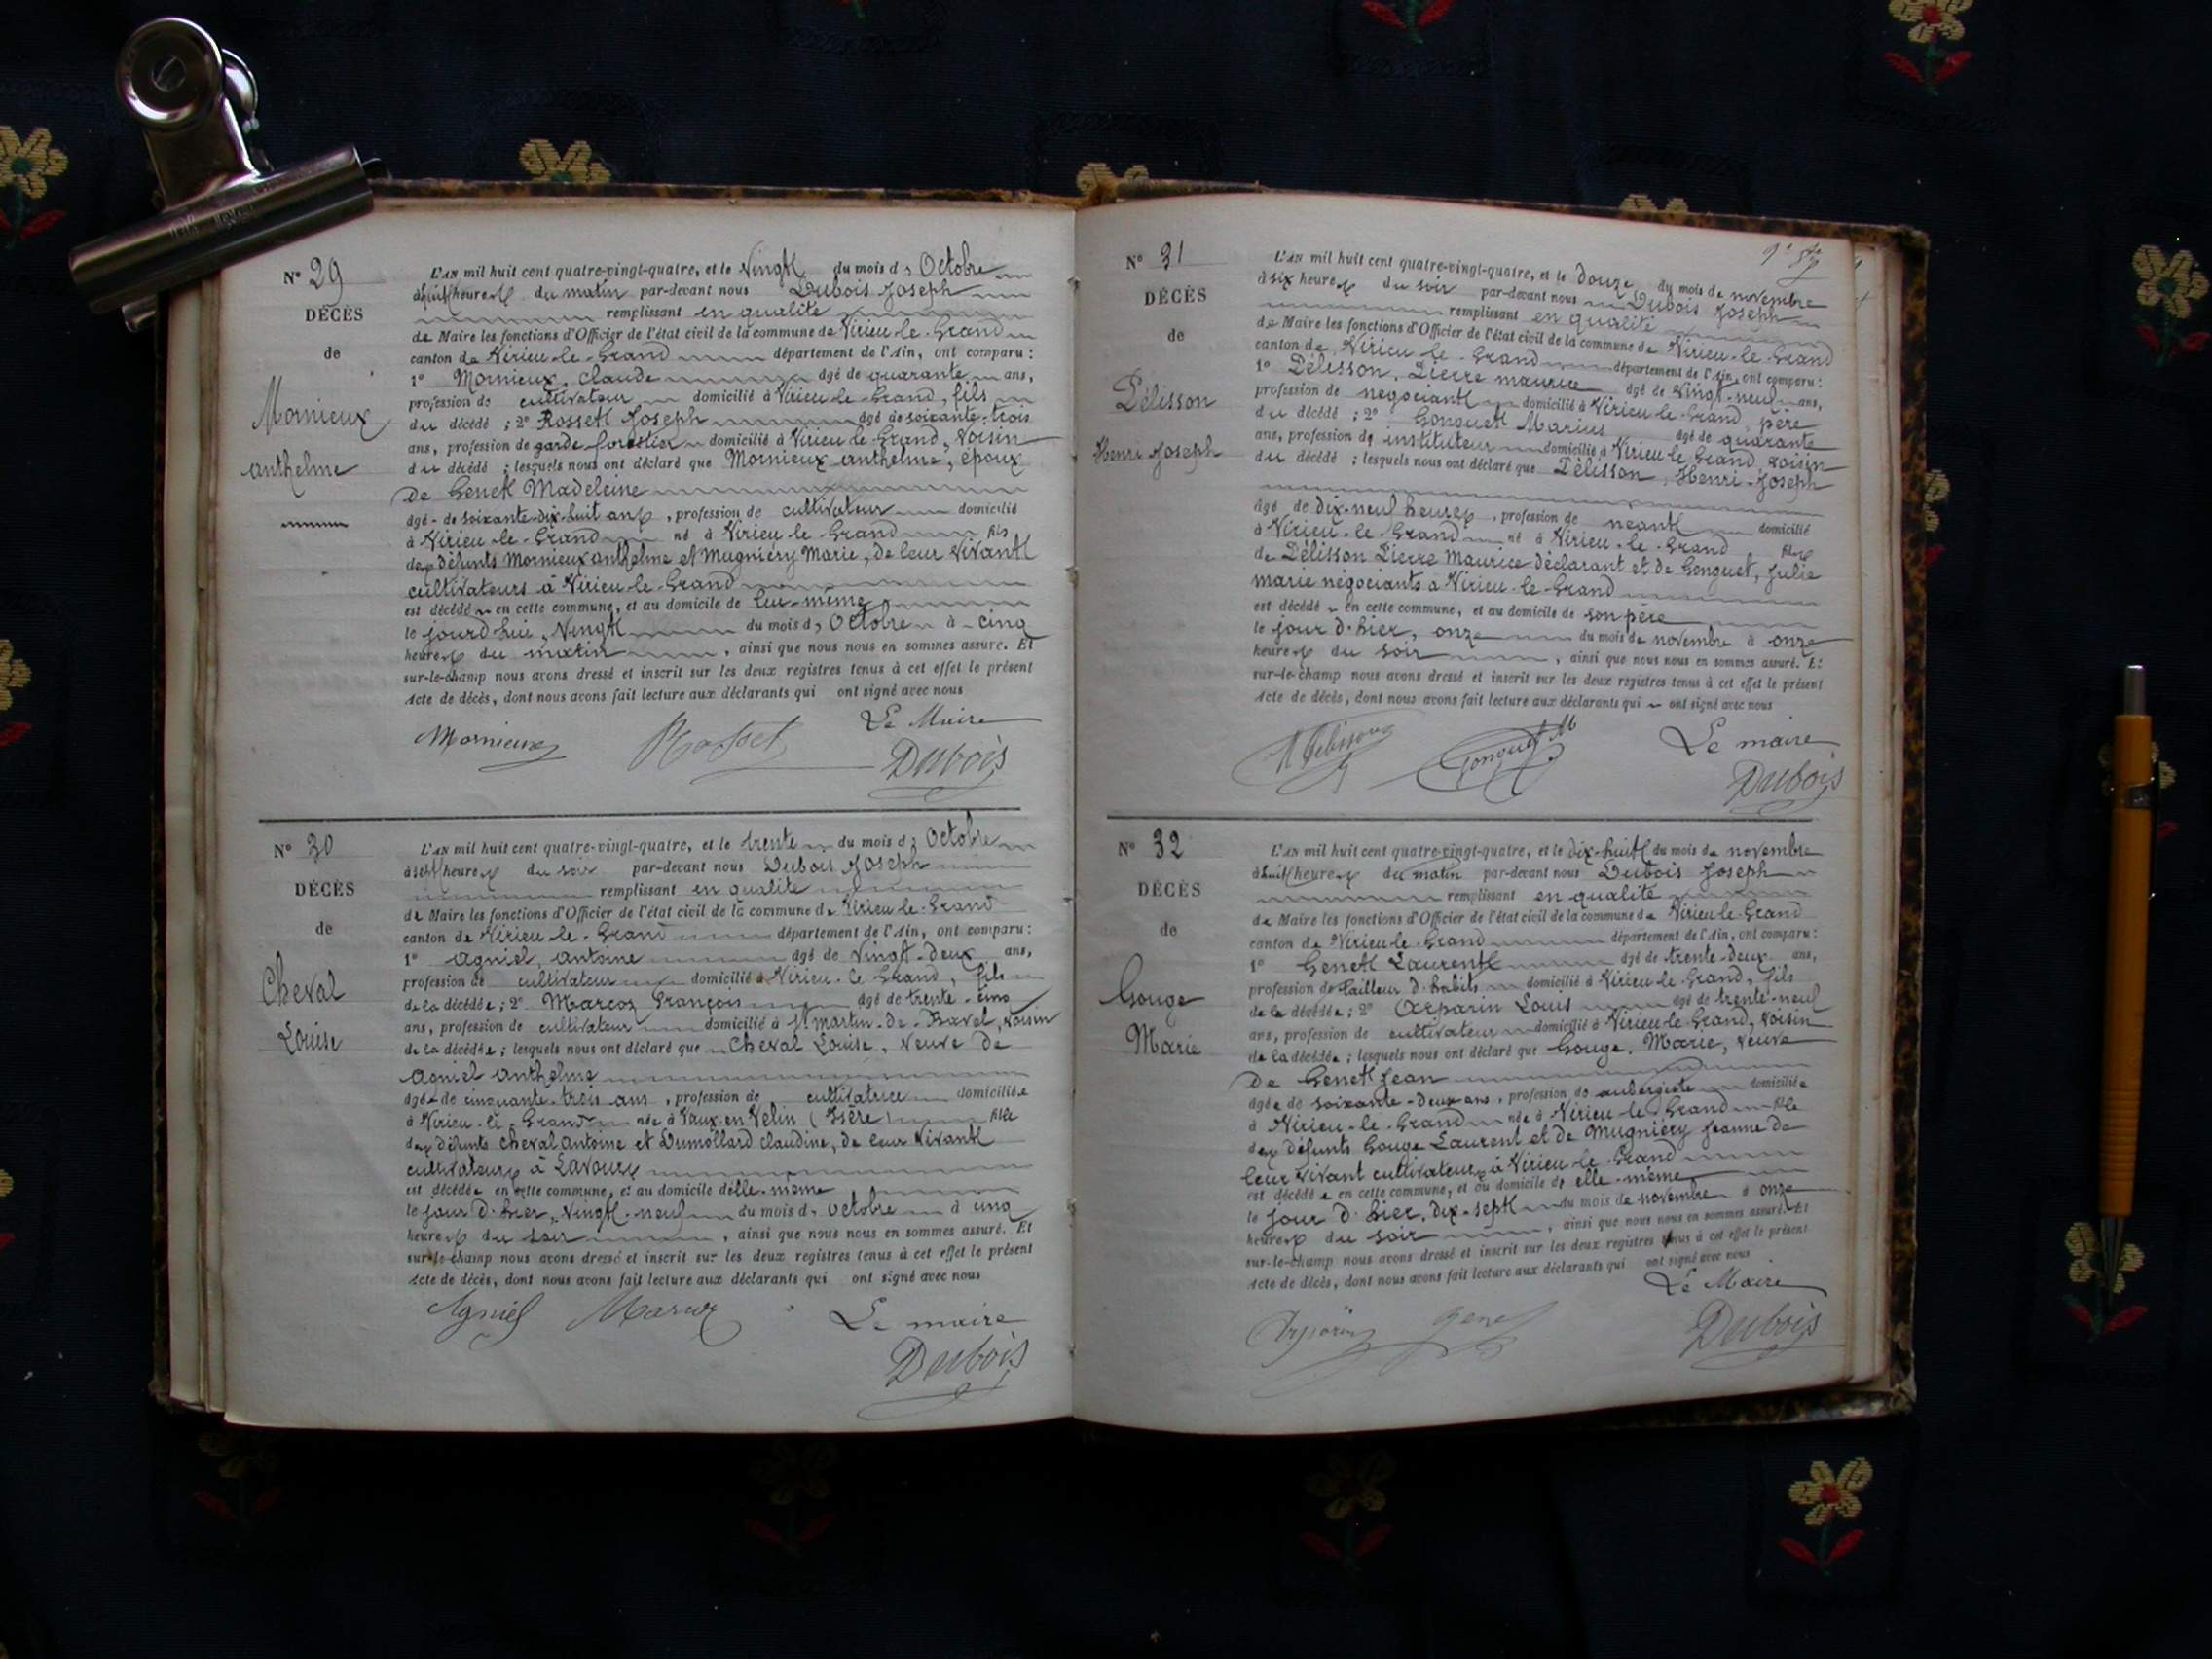 N° 29
DÉCÈS
de
Mornieux
anthelme
L'AN mil huit cent quatre-vingt-quatre, et le Vingt du mois d Octobre
à huit heures du matin par-devant nous Dubois Joseph
remplissant en qualité
de Maire les fonctions d'Officier de l'état civil de la commune de Virieu-le-Grand
canton de Virieu-le-Grand département de l'Ain, ont comparu :
1° Mornieux, Claude âgé de quarante ans,
profession de cultivateur domicilié à Virieu-le-Grand, fils
du décédé ; 2° Rosset Joseph âgé de soixante-trois
ans, profession de garde forestier domicilié à Virieu-le-Grand, Voisin
du décédé ; lesquels nous ont déclaré que Mornieux anthelme, époux
de Genet Madeleine
âgé de soixante-dix-huit ans, profession de cultivateur domicilié
à Virieu-le-Grand né à Virieu-le-Grand fils
des défunts Mornieux anthelme et Mugniéry Marie, de leur Vivant
cultivateurs à Virieu-le-Grand
est décédé en cette commune, et au domicile de lui-même
le jourd'hui, Vingt du mois d Octobre à cinq
heures du matin, ainsi que nous nous en sommes assuré. Et
sur-le-champ nous avons dressé et inscrit sur les deux registres tenus à cet effet le présent
Acte de décès, dont nous avons fait lecture aux déclarants qui ont signé avec nous
Le Maire
Mornieux Rosset Dubois
N° 30
DÉCÈS
de
Cheval
Louise
L'AN mil huit cent quatre-vingt-quatre, et le trente du mois d Octobre
à sept heures du soir par-devant nous Dubois Joseph
remplissant en qualité
de Maire les fonctions d'Officier de l'état civil de la commune de Virieu-le-Grand
canton de Virieu-le-Grand département de l'Ain, ont comparu :
1° Agniel, Antoine âgé de Vingt-deux ans,
profession de cultivateur domicilié à Virieu-le-Grand, fils
de la décédée ; 2° Marcoz François âgé de trente-cinq
ans, profession de cultivateur domicilié à St Martin-de-Bavel, voisin
de la décédée ; lesquels nous ont déclaré que Cheval Louise, Veuve de
Agniel Anthelme
âgée de cinquante-trois ans, profession de cultivatrice domiciliée
à Virieu-le-Grand née à Vaux-en-Velin (Isère) fille
des défunts Cheval antoine et Dumollard claudine, de leur Vivant
cultivateurs à Lavours
est décédée en cette commune, et au domicile d'elle-même
le jour d'hier, Vingt-neuf du mois d Octobre à cinq
heures du soir, ainsi que nous nous en sommes assuré. Et
sur-le-champ nous avons dressé et inscrit sur les deux registres tenus à cet effet le présent
Acte de décès, dont nous avons fait lecture aux déclarants qui ont signé avec nous
Agniel Marcoz Le maire
Dubois
N° 31
DÉCÈS
de
Pélisson
Henri Joseph
L'AN mil huit cent quatre-vingt-quatre, et le douze du mois de novembre
à six heures du soir par-devant nous Dubois Joseph
remplissant en qualité
de Maire les fonctions d'Officier de l'état civil de la commune de Virieu-le-Grand
canton de Virieu-le-Grand département de l'Ain, ont comparu :
1° Pélisson, Pierre maurice âgé de Vingt-neuf ans,
profession de négociant domicilié à Virieu-le-Grand, père
du décédé ; 2° Gonguet Marius âgé de quarante
ans, profession de instituteur domicilié à Virieu-le-Grand, voisin
du décédé ; lesquels nous ont déclaré que Pélisson, Henri-Joseph
âgé de dix-neuf heures, profession de néant domicilié
à Virieu-le-Grand né à Virieu-le-Grand fils
de Pélisson Pierre Maurice déclarant et de Gonguet, Julie
marie négociants à Virieu-le-Grand
est décédé en cette commune, et au domicile de son père
le jour d'hier, onze du mois de novembre à onze
heures du soir, ainsi que nous nous en sommes assuré. Et
sur-le-champ nous avons dressé et inscrit sur les deux registres tenus à cet effet le présent
Acte de décès, dont nous avons fait lecture aux déclarants qui ont signé avec nous
Gonguet M Le maire
Dubois
N° 32
DÉCÈS
de
Gouge
Marie
L'AN mil huit cent quatre-vingt-quatre, et le dix-huit du mois de novembre
à huit heures du matin par-devant nous Dubois Joseph
remplissant en qualité
de Maire les fonctions d'Officier de l'état civil de la commune de Virieu-le-Grand
canton de Virieu-le-Grand département de l'Ain, ont comparu :
1° Genet Laurent âgé de trente-deux ans,
profession de tailleur d'habits domicilié à Virieu-le-Grand, fils
de la décédée ; 2° Arparin Louis âgé de trente-neuf
ans, profession de cultivateur domicilié à Virieu-le-Grand, voisin
de la décédée ; lesquels nous ont déclaré que Gouge, Marie, veuve
de Genet Jean
âgée de soixante-deux ans, profession de aubergiste domiciliée
à Virieu-le-Grand née à Virieu-le-Grand fille
des défunts Gouge Laurent et de Mugniéry Jeanne de
leur Vivant cultivateurs à Virieu-le-Grand
est décédée en cette commune, et au domicile de elle-même
le jour d'hier, dix-sept du mois de novembre à onze
heures du soir, ainsi que nous nous en sommes assuré. Et
sur-le-champ nous avons dressé et inscrit sur les deux registres tenus à cet effet le présent
Acte de décès, dont nous avons fait lecture aux déclarants qui ont signé avec nous
Le Maire
Arparin Genet Dubois